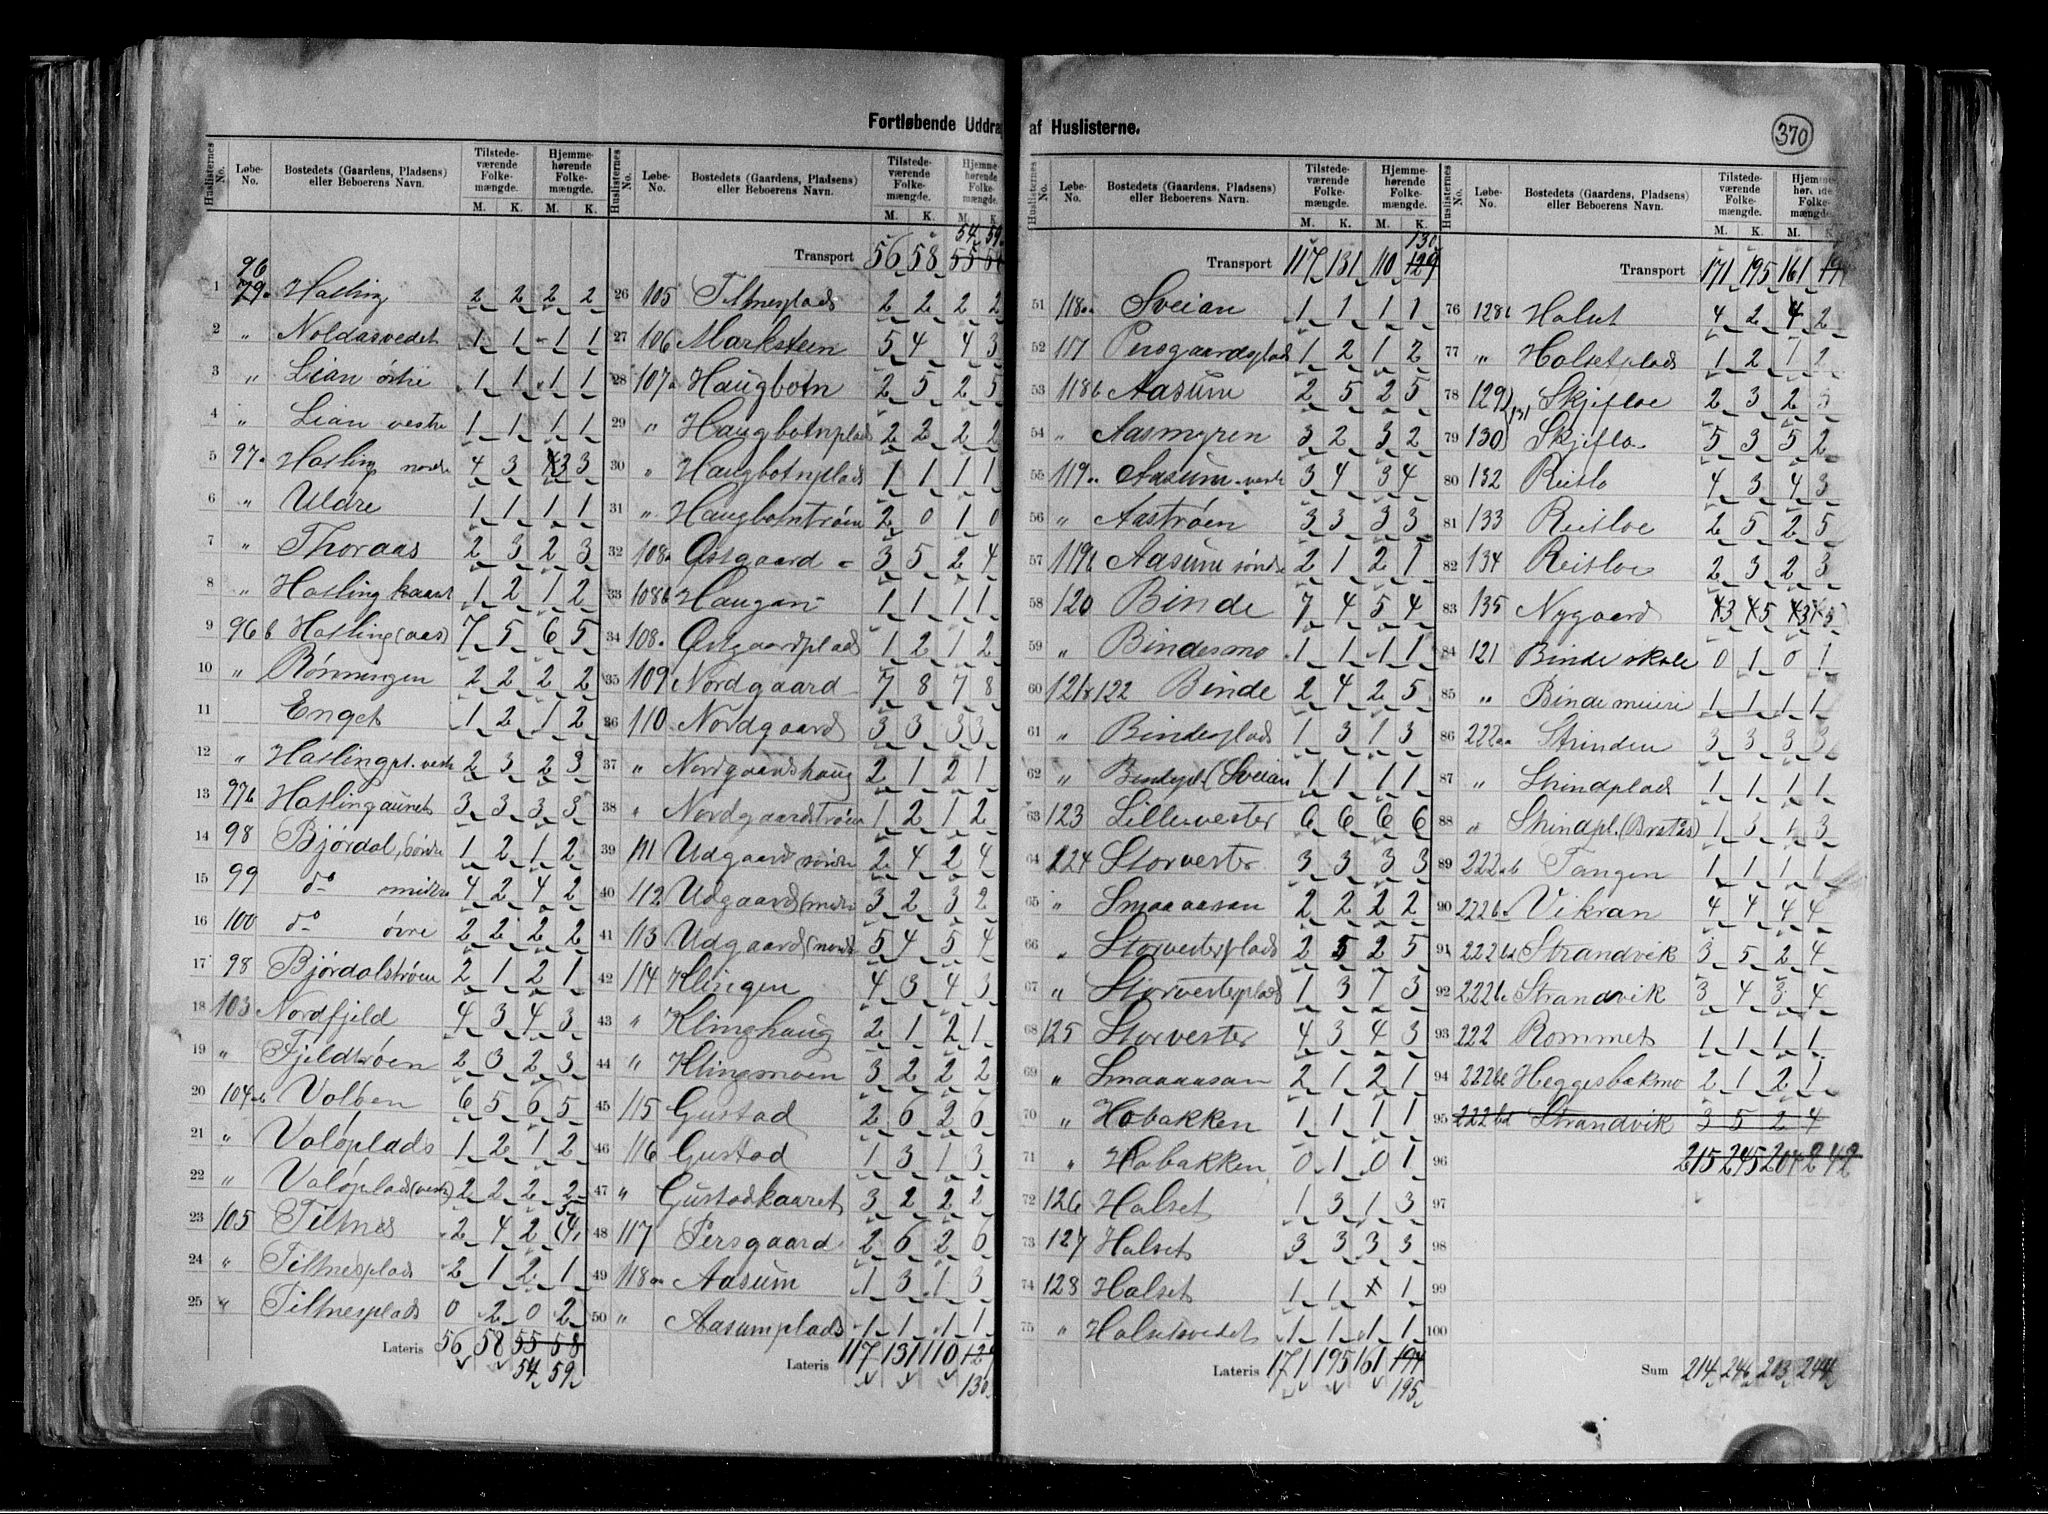 Fortløbende Uddra af Huslisterne.
370
Huslisternes No. Løbe-No. Bostedets (Gaardens, Pladsens) eller Beboerens Navn. Tilstedeværende Folkemængde. M. K. Hjemmehørende Folkemængde. M. K.
96
1 79a Hatling 2 2 2 2
2 " Noldasvedet 1 1 1 1
3 " Lian østre 1 1 1 1
4 " Lian vestre 1 1 1 1
5 97a Hatling nordre 4 3 3 3
6 " Uldre 1 1 1 1
7 " Thoraas 2 3 2 3
8 " Hatling kaaret 1 2 1 2
9 96 b Hatling (aas) 7 5 6 5
10 " Rønningen 2 2 2 2
11 Enget 1 2 1 2
12 " Hatlingpl. vestre 2 3 2 3
13 97b Hatlingaunet 3 3 3 3
14 98 Bjørdal, søndre 1 2 1 2
15 99 do midtre 4 2 4 2
16 100 do øvre 2 2 2 2
17 98 Bjørdalstrøen 2 1 2 1
18 103 Nordfjeld 4 3 4 3
19 " Fjeldtrøen 2 3 2 3
20 104 Valøen 6 5 6 5
21 " Valøplads 1 2 1 2
22 " Valøplads (vestre) 2 2 2 2
23 105 Tiltnes 2 4 2 5
24 " Tiltnesplads 2 1 2 1
25 " Tiltnesplads 0 2 0 2
Lateris 56 58 55 58
54 59
54 59
Transport 56 58 55 58
26 105 Tiltnesplads 2 2 2 2
27 106 Marksteen 5 4 4 3
28 107a Haugbotn 2 5 2 5
29 " Haugbotnplads 2 2 2 2
30 " Haugbotnplads 1 1 1 1
31 " Haugbotntrøen 2 0 1 0
32 108a Østgaard 3 5 2 4
33 108b Haugan 1 1 1 1
34 108a Østgaardplads 1 2 1 2
35 109 Nordgaard 7 8 7 8
36 110 Nordgaard 3 3 3 3
37 " Nordgaardshaug 2 1 2 1
38 " Nordgaardstrøen 1 2 1 2
39 111 Udgaard søndre 2 4 2 4
40 112 Udgaard (midtre 3 2 3 2
41 113 Udgaard (nordre 5 4 5 4
42 114 Klingen 4 3 4 3
43 " Klinghaug 2 1 2 1
44 " Klingsmoen 3 2 2 2
45 115 Gustad 2 6 2 6
46 116 Gustad 1 3 1 3
47 " Gustadkaaret 3 2 2 2
48 117 Persgaard 2 6 2 6
49 118a Aasum 1 3 1 3
50 " Aasumplads 1 1 1 1
Lateris 117 131 110 129
130
130
Transport 117 131 110 129
51 118a Sveian 1 1 1 1
52 117 Persgaardsplads 1 2 1 2
53 118b Aasum 2 5 2 5
54 " Aasmyren 3 2 3 2
55 119a Aasum vestre 3 4 3 4
56 " Aastrøen 3 3 3 3
57 119b Aasum søndre 2 1 2 1
58 120 Binde 7 4 5 4
59 " Bindesmo 1 1 1 1
60 121&122 Binde 2 4 2 5
61 " Bindesplads 1 3 1 3
62 " Bindepl. (Sveian 1 1 1 1
63 123 Lillevester 6 6 6 6
64 124 Storvester 3 3 3 3
65 " Smaaaasan 2 2 2 2
66 " Storvesterplads 2 5 2 5
67 " Storvesterplads 1 3 1 3
68 125 Storvester 4 3 4 3
69 " Smaaaasan 2 1 2 1
70 " Hobakken 1 1 1 1
71 " Hobakken 0 1 0 1
72 126 Halset 1 3 1 3
73 127 Halset 3 3 3 3
74 128 Halset 1 1 x 1
75 " Halsetsvedet 1 1 1 1
Lateris 171 195 161 194
195
Transport 171 195 161
76 128b Halset 4 2 4 2
77 " Halsetplads 1 2 1 2
78 129 131 Skjefloe 2 3 2 3
79 130 Skjeflo 5 3 5 2
80 132 Reitlo 4 3 4 3
81 133 Reitloe 2 5 2 5
82 134 Reitloe 2 3 2 3
83 135 Nygaard 3 5 3 5
84 121 Binde skole 0 1 0 1
85 " Binde mieri 1 1 1 1
86 222a Strinden 3 3 3 3
87 " Strindplads 1 1 1 1
88 " Strindpl. 1 3 1 3
89 222ab Tangen 1 1 1 1
90 222b Vikran 4 4 4 4
91 222bd Strandvik 3 5 2 4
92 222bc Strandvik 3 4 3 4
93 222 Rommet 1 1 1 1
94 222be Heggesbækmo 2 1 2 1
95 222bd Strandvik 3 5 2 4
96 215 245 204 242
97
98
99
100
Sum 214 246 203 244